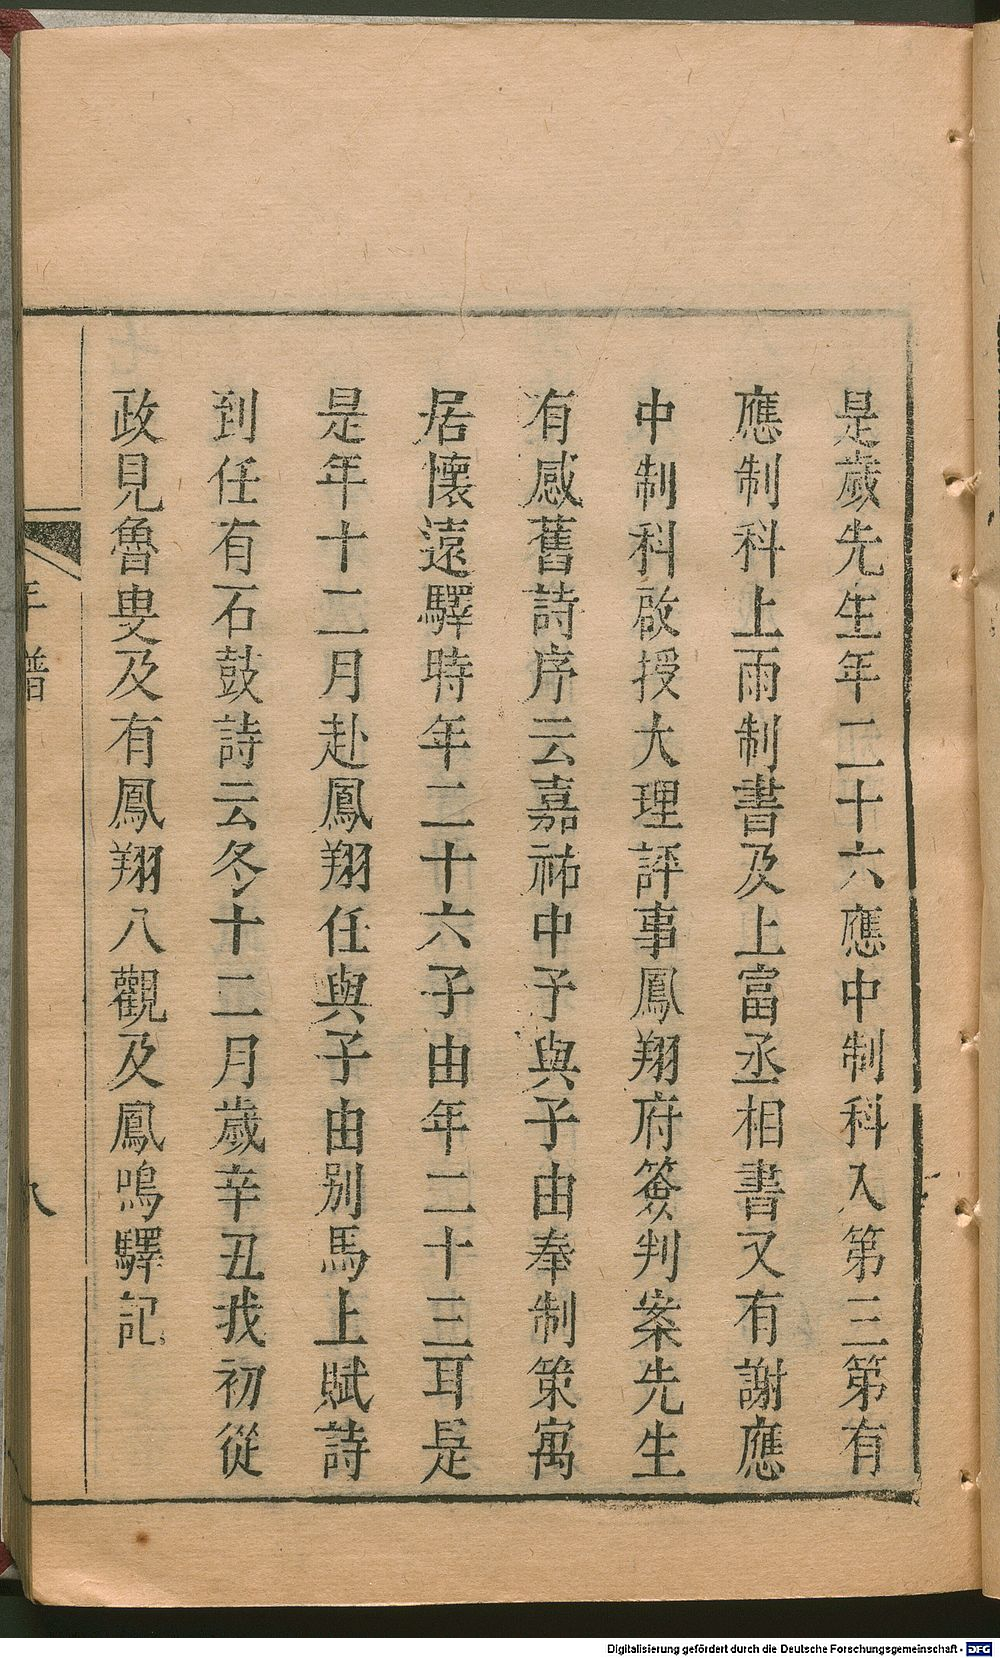 是歲先生年二十六應中制科入第三第有
應制科上兩制書及上富丞相書又有謝應
中制科啟授大理評事鳳翔府簽判案先生
有感舊詩序云嘉祐中予與子由奉制策寓
居懷遠驛時年二十六子由年二十三耳是
是年十二月赴鳳翔任與子由別馬上賦詩
到任有石鼓詩云冬十二月歲辛丑我初從
政見魯叟及有鳳翔八觀及鳳鳴驛記
年譜
八
Digitalisierung gefördert durch die Deutsche Forschungsgemeinschaft - DFG